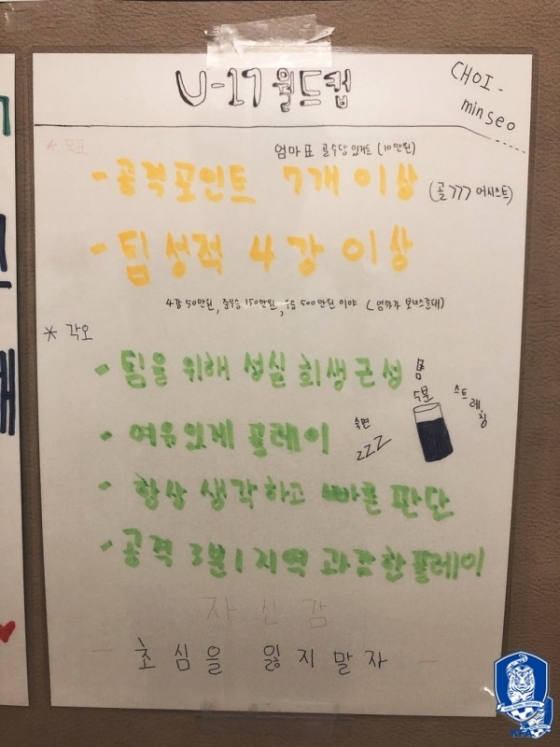 U-17 월드컵
CHOI-
min seo
* 목표
엄마표 골수당 있게도 (10만원)
- 공격포인트 7개 이상
(골 777 어시스트)
- 팀 성적 4강 이상
4강 50만원, 준우승 150만원, 우승 500만원 이야 (엄마가 보너스준대)
* 각오
- 팀을 위해 성실 희생 근성
몸
수분
스트레칭
- 여유있게 플레이
숙면
zzz
- 항상 생각하고 빠른 판단
- 공격 3분1지역 과감한 플레이
자신감
- 초심을 잃지말자 -